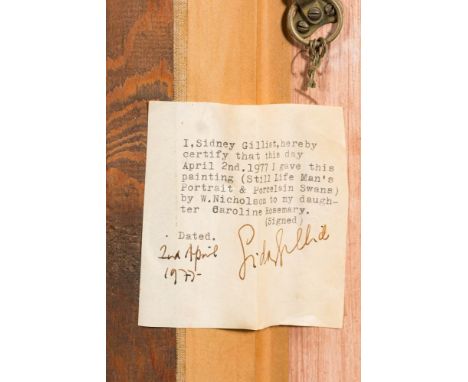 I, Sidney Gilliat, hereby
certify that this day
April 2nd. 1977 I gave this
painting (Still Life Man's
Portrait & Porcelain Swans)
by W. Nicholson to my daugh-
ter Caroline Rosemary.
(Signed)
Dated.
2nd April
1977-
Sidney Gilliat